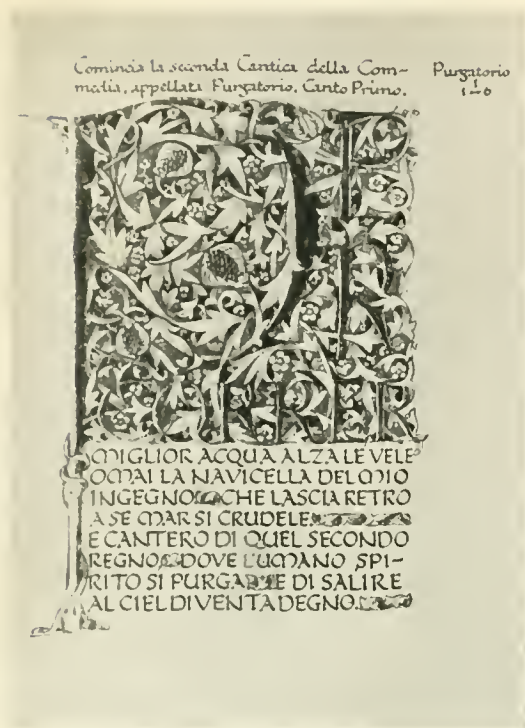 Comincia la seconda Cantica della Com-
media, appellata Purgatorio. Canto Primo.
Purgatorio
I
1-6
MIGLIOR ACQUA ALZA LE VELE
OMAI LA NAVICELLA DEL MIO
INGEGNO CHE LASCIA RETRO
A SE MAR SI CRUDELE
E CANTERO DI QUEL SECONDO
REGNO DOVE L'UMANO SPI-
RITO SI PURGA E DI SALIRE
AL CIEL DIVENTA DEGNO.